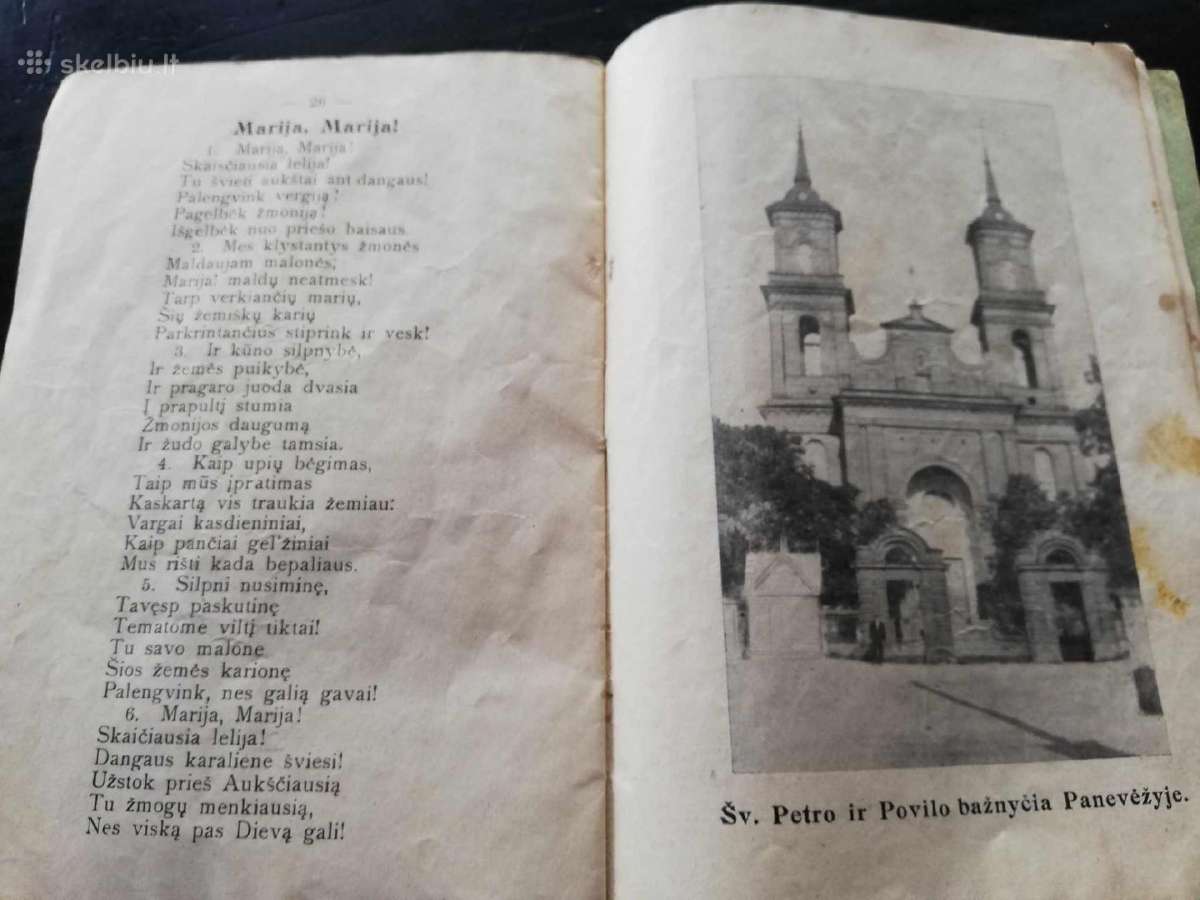 skelbiu.lt
— 26 —
Marija, Marija!
1. Marija, Marija!
Skaisčiausia lelija!
Tu švieti aukštai ant dangaus!
Palengvink vergiją!
Pagelbėk žmoniją!
Išgelbėk nuo priešo baisaus.
2. Mes klystantys žmonės
Maldaujam malonės,
Marija! maldų neatmesk!
Tarp verkiančių marių,
Šių žemiškų karių
Parkrintančius stiprink ir vesk!
3. Ir kūno silpnybė,
Ir žemės puikybė,
Ir pragaro juoda dvasia
Į prapultį stumia
Žmonijos daugumą
Ir žudo galybe tamsia.
4. Kaip upių bėgimas,
Taip mūs įpratimas
Kaskartą vis traukia žemiau:
Vargai kasdieniniai,
Kaip pančiai gel'žiniai
Mus rišti kada bepaliaus.
5. Silpni nusiminę,
Tavęsp paskutinę
Tematome viltį tiktai!
Tu savo malone
Šios žemės karionę
Palengvink, nes galią gavai!
6. Marija, Marija!
Skaičiausia lelija!
Dangaus karaliene šviesi!
Užstok prieš Aukščiausią
Tu žmogų menkiausią,
Nes viską pas Dievą gali!
Šv. Petro ir Povilo bažnyčia Panevėžyje.